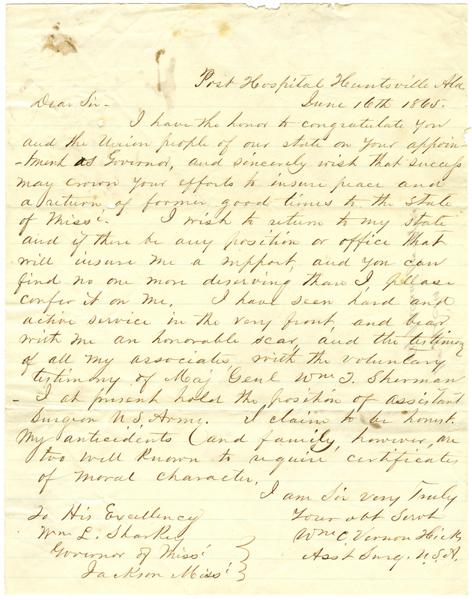 Post Hospital Huntsville Ala
June 16th 1865.
Dear Sir-
I have the honor to congratulate you
and the Union people of our state on your appoin
-tment as Governor, and sincerely wish that success
may crown your efforts to insure peace and
a return of former good times to the State
of Missi. I wish to return to my state
and if there be any position or office that
will insure me a support, and you can
find no one more deserving than I, please
confer it on me. I have seen hard and
active service in the very front, and bear
with me an honorable scar, and the testimony
of all my associates, with the voluntary
testimony of Maj Genl Wm T. Sherman
- I at present hold the position of assistant
Surgeon U.S. Army. I claim to be honest.
My antecidents (and family, however, are
too well known to require certificates
of moral character.
I am Sir very Truly
Your obt Servt
Wm C. Vernon Hicks
Asst Surg. U.S.A.
To His Excellency
Wm L. Sharkey
Governor of Missi
Jackson Missi